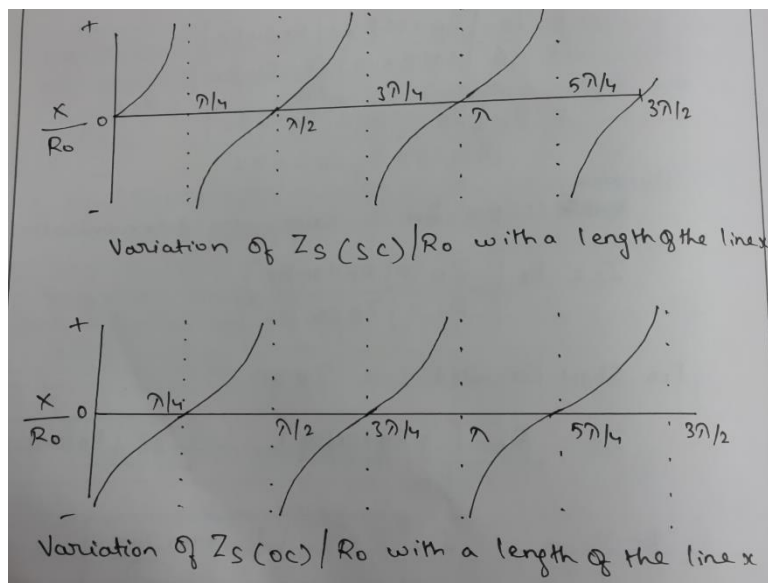 +
λ/4
3λ/4
5λ/4
X/R₀
0
λ/2
λ
3λ/2
-
Variation of Zs (sc)/R₀ with a length of the line x
+
X/R₀
0
λ/4
λ/2
3λ/4
λ
5λ/4
3λ/2
-
Variation of Zs (oc)/R₀ with a length of the line x